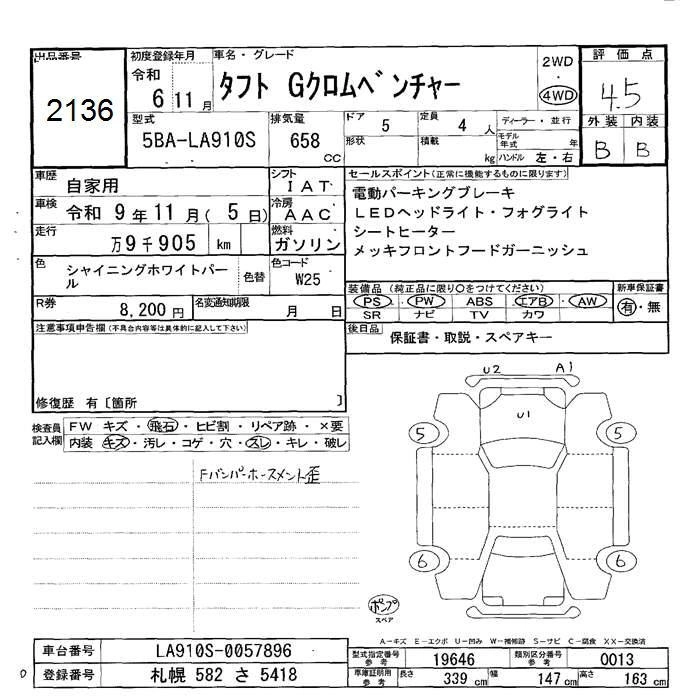 出品番号
2136
初度登録年月
令和
6 11月
車名・グレード
タフト Gクロムベンチャー
2WD
4WD
評価点
4.5
外装 内装
B B
型式
5BA-LA910S
排気量
658
cc
ドア 5
定員 4 人
形状
積載 kg
ディーラー・並行
モデル年式 年
ハンドル 左・右
車歴 自家用
シフト IAT
車検 令和 9年11月(5日)
冷房 AAC
走行 万9千905 km
燃料 ガソリン
色 シャイニングホワイトパール
色替
色コード W25
R券 8,200円
名変通知期限 月 日
セールスポイント(正常に機能するものに限ります)
電動パーキングブレーキ
LEDヘッドライト・フォグライト
シートヒーター
メッキフロントフードガーニッシュ
装備品(純正品に限り〇をつけてください)
PS・PW・ABS・エアB・AW
SR ナビ TV カワ
新車保証書
有・無
後日品 保証書・取説・スペアキー
注意事項申告欄(不具合内容等は具体的に記入して下さい)
修復歴 有[箇所 ]
検査員記入欄
FW キズ・飛石・ヒビ割・リペア跡・×要
内装 キズ・汚レ・コゲ・穴・スレ・キレ・破レ
Fバンパーホースメント歪
U2 A1
U1
5 5
6 6
ポンプ
スペア
A-キズ E-エクボ U-凹み W-補修跡 S-サビ C-腐食 XX-交換済
車台番号 LA910S-0057896
登録番号 札幌 582 さ 5418
型式指定番号 参考 19646
類別区分番号 参考 0013
車庫証明用 参考
長さ 339 cm 幅 147 cm 高さ 163 cm